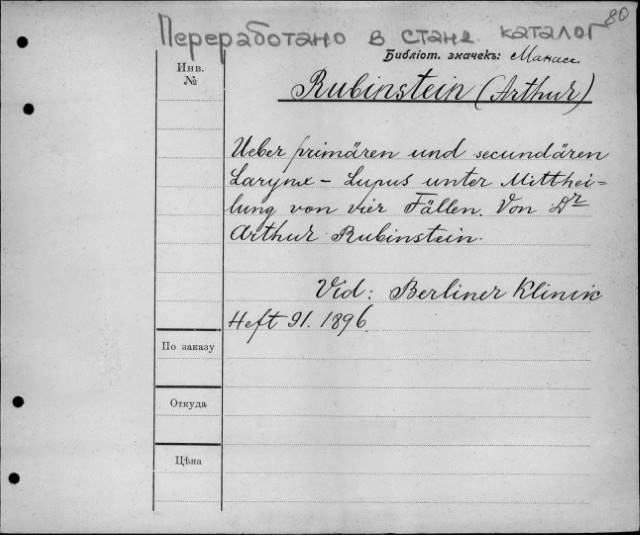 80
Переработано в стане. каталог
Библіот. значекъ: Манасс
Инв.
№
Rubinstein (Arthur)
Ueber primären und secundären
Larynx - Lupus unter Mitthei=
lung von vier Fällen. Von Dr
Arthur Rubinstein.
Vid: Berliner Klinik
Heft 91. 1896.
По заказу
Откуда
Цѣна